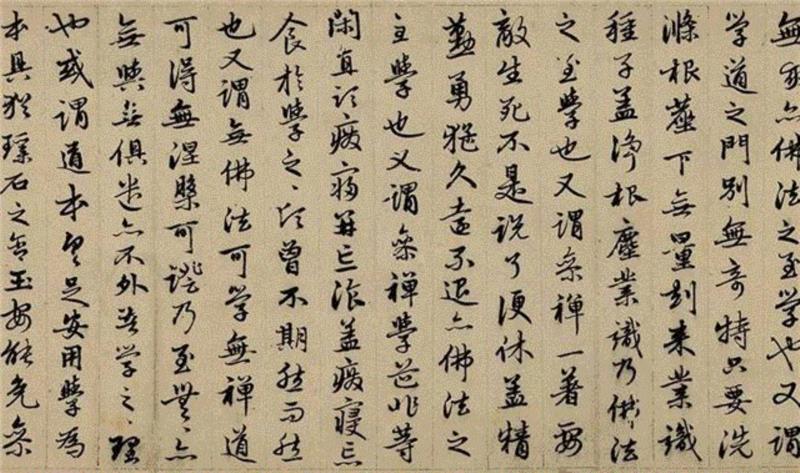 無我亦佛法之至學也又謂
學道之門別無奇特只要洗
滌根塵下無量劫來業識
種子蓋淨根塵業識乃佛法
之至學也又謂參禪一著要
敵生死不是說了便休蓋精
勤勇猛久遠不退亦佛法之
至學也又謂參禪學道非等
閑直須廢寢并忘飡蓋廢寢忘
食於學之〻頃曾不期然而然
也又謂無佛法可學無禪道
可得無涅槃可證乃至無〻亦
無與無俱遣亦不外吾學之〻理
也或謂道本具足安用學為
本具猶璞石之含玉安能免參